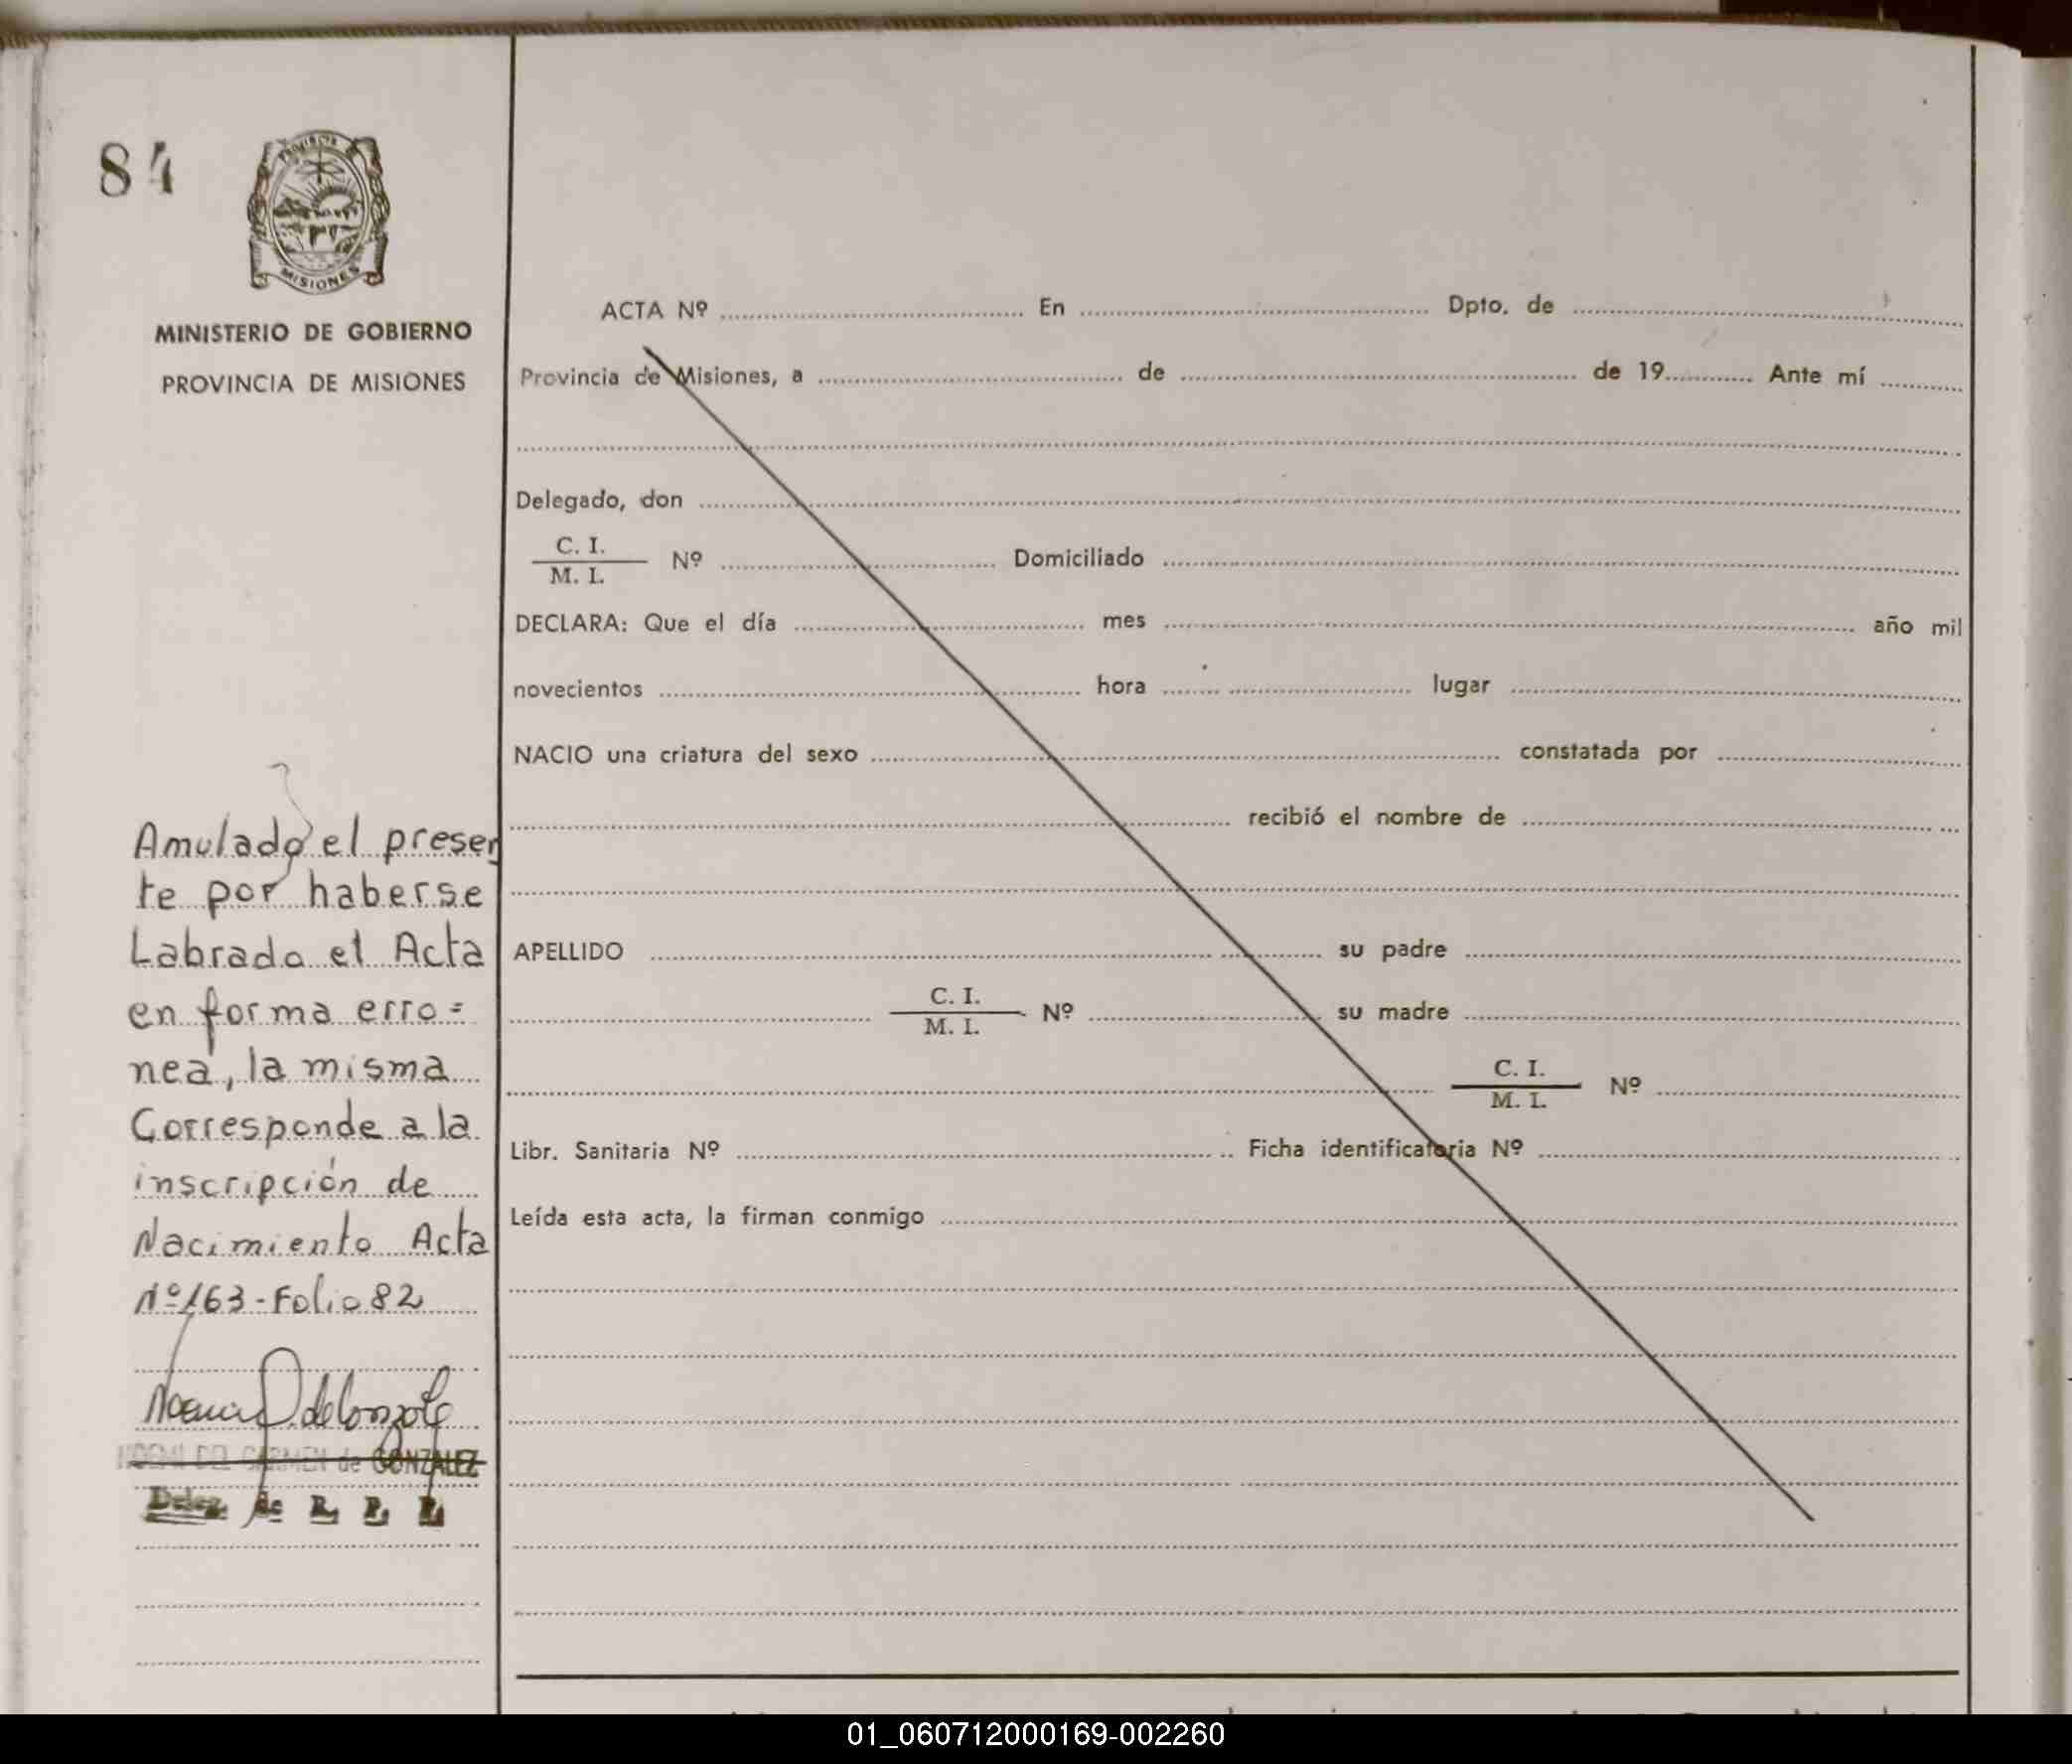 84
Provincia
MISIONES
MINISTERIO DE GOBIERNO
PROVINCIA DE MISIONES
Amulado el presen
te por haberse
Labrado el Acta
en forma erro=
nea, la misma
Corresponde a la
inscripción de
Nacimiento Acta
Nº163-Folio 82
NOEMI DEL CARMEN de GONZALEZ
Deleg. de R. P. P.
ACTA Nº ........ En ........ Dpto. de ........
Provincia de Misiones, a ........ de ........ de 19........ Ante mí ........
Delegado, don ........
C. I.
M. I. Nº ........ Domiciliado ........
DECLARA: Que el día ........ mes ........ año mil
novecientos ........ hora ........ lugar ........
NACIO una criatura del sexo ........ constatada por ........
........ recibió el nombre de ........
APELLIDO ........ su padre ........
C. I.
M. I. Nº ........ su madre ........
C. I.
M. I. Nº ........
Libr. Sanitaria Nº ........ Ficha identificatoria Nº ........
Leída esta acta, la firman conmigo ........
01_060712000169-002260